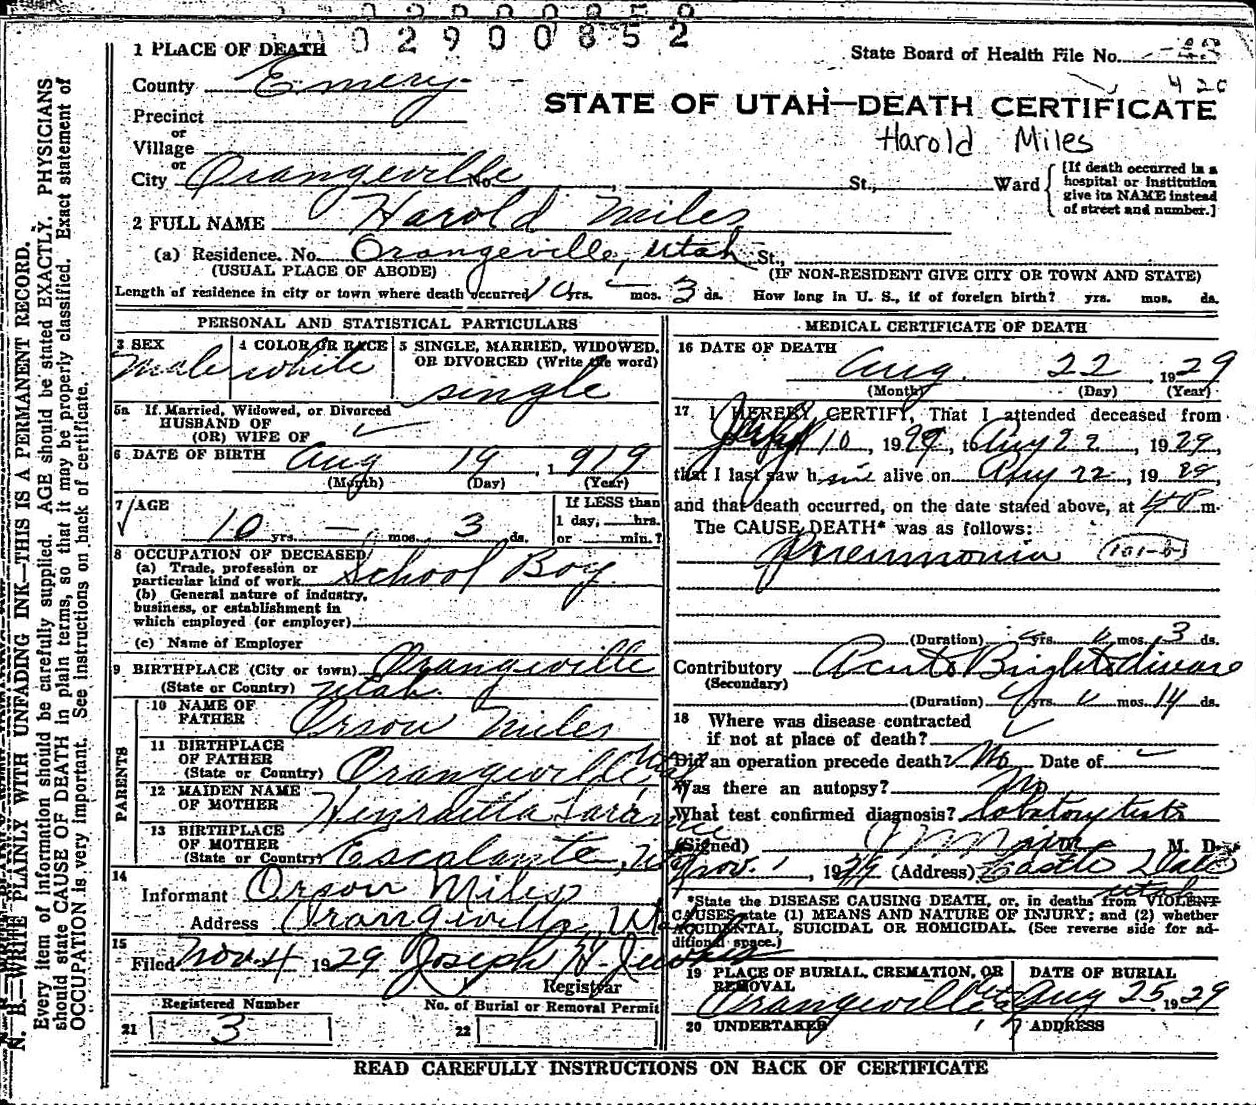 0 2 9 0 0 8 5 2
1 PLACE OF DEATH
State Board of Health File No.
420
County Emery
STATE OF UTAH—DEATH CERTIFICATE
Precinct
Harold Miles
or
Village
or
City Orangeville No. St., Ward
[If death occurred in a
hospital or institution
give its NAME instead
of street and number.]
2 FULL NAME Harold Miles
(a) Residence. No. Orangeville, Utah St.,
(USUAL PLACE OF ABODE) (IF NON-RESIDENT GIVE CITY OR TOWN AND STATE)
Length of residence in city or town where death occurred 10 yrs. – mos. 3 ds. How long in U. S., if of foreign birth? yrs. mos. ds.
PERSONAL AND STATISTICAL PARTICULARS
3 SEX
Male
4 COLOR OR RACE
white
5 SINGLE, MARRIED, WIDOWED,
OR DIVORCED (Write the word)
single
5a If Married, Widowed, or Divorced
HUSBAND OF
(OR) WIFE OF
6 DATE OF BIRTH Aug 19, 1919
(Month) (Day) (Year)
7 AGE
10 yrs. – mos. 3 ds.
If LESS than
1 day, hrs.
or min.?
8 OCCUPATION OF DECEASED
(a) Trade, profession or
particular kind of work School Boy
(b) General nature of industry,
business, or establishment in
which employed (or employer)
(c) Name of Employer
9 BIRTHPLACE (City or town) Orangeville
(State or Country) Utah.
PARENTS
10 NAME OF
FATHER Orson Miles
11 BIRTHPLACE
OF FATHER
(State or Country) Orangeville Utah
12 MAIDEN NAME
OF MOTHER Henrietta
13 BIRTHPLACE
OF MOTHER
(State or Country) Escalante, Ut
14
Informant Orson Miles
Address Orangeville, Utah
15
Filed Nov. 4 1929 Joseph H.
Registrar
Registered Number No. of Burial or Removal Permit
21 3 22
MEDICAL CERTIFICATE OF DEATH
16 DATE OF DEATH
Aug. 22 1929
(Month) (Day) (Year)
17 I HEREBY CERTIFY, That I attended deceased from
10, 1929, to Aug 22 1929,
that I last saw him alive on Aug 22, 1929,
and that death occurred, on the date stated above, at 4 P m.
The CAUSE DEATH* was as follows:
Pneumonia (101-b)
(Duration) yrs. mos. 3 ds.
Contributory Acute Brights disease
(Secondary)
(Duration) yrs. mos. 14 ds.
18 Where was disease contracted
if not at place of death?
Did an operation precede death? No Date of
Was there an autopsy? No
What test confirmed diagnosis? tests
(Signed) M. D.
Nov. 1, 1929 (Address) Castle Dale
Utah
*State the DISEASE CAUSING DEATH, or, in deaths from VIOLENT
CAUSES state (1) MEANS AND NATURE OF INJURY; and (2) whether
ACCIDENTAL, SUICIDAL OR HOMICIDAL. (See reverse side for ad-
ditional space.)
19 PLACE OF BURIAL, CREMATION, OR
REMOVAL
Orangeville
DATE OF BURIAL
Aug 25, 1929
20 UNDERTAKER ADDRESS
READ CAREFULLY INSTRUCTIONS ON BACK OF CERTIFICATE
N. B.—WRITE PLAINLY WITH UNFADING INK—THIS IS A PERMANENT RECORD.
Every item of information should be carefully supplied. AGE should be stated EXACTLY. PHYSICIANS
should state CAUSE OF DEATH in plain terms, so that it may be properly classified. Exact statement of
OCCUPATION is very important. See instructions on back of certificate.